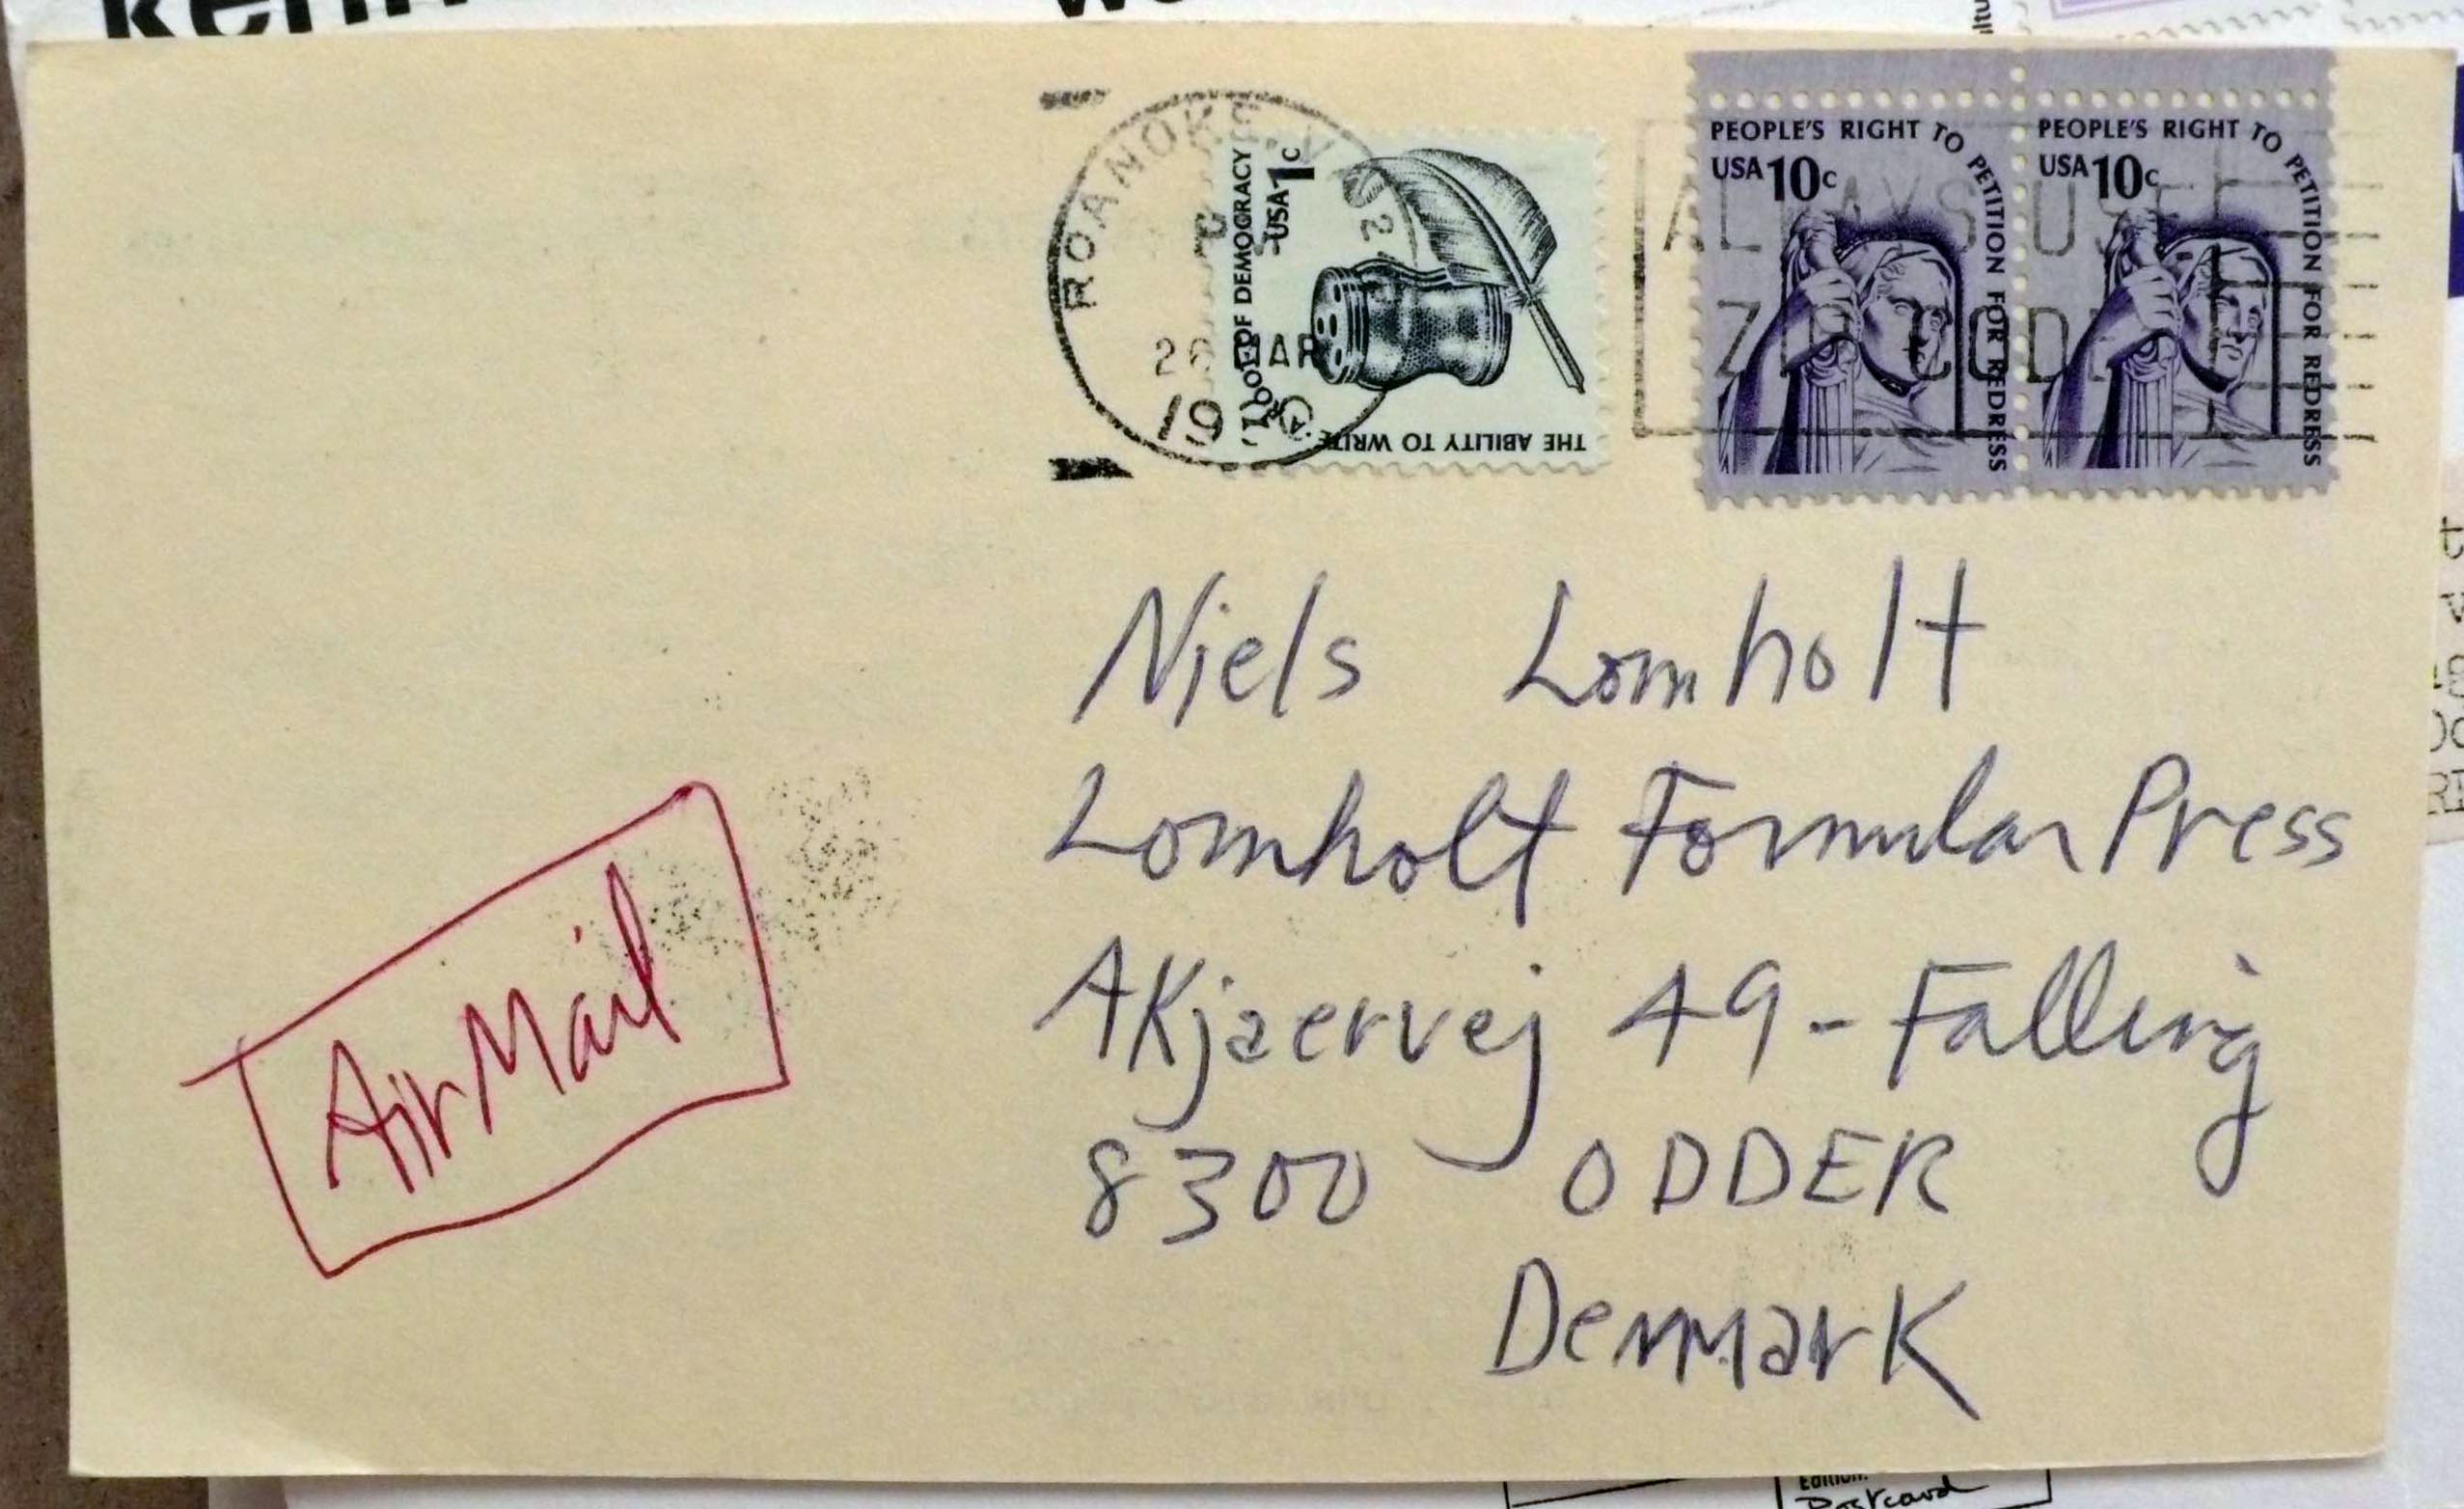 ROANOKE, V
26 MAR
19
THE ABILITY TO WRITE. A
ROOT OF DEMOCRACY
USA 1c
PEOPLE'S RIGHT TO PETITION FOR REDRESS
USA 10c
PEOPLE'S RIGHT TO PETITION FOR REDRESS
USA 10c
ALWAYS USE
ZIP CODE
Niels Lomholt
Lomholt Formular Press
AKjaervej 49 - Falling
8300 ODDER
Denmark
Air Mail
Edition:
Postcard